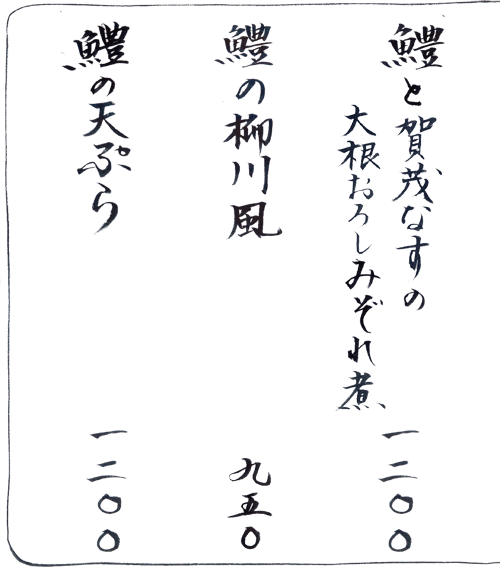 鱧と賀茂なすの
大根おろしみぞれ煮
一二〇〇
鱧の柳川風
九五〇
鱧の天ぷら
一二〇〇